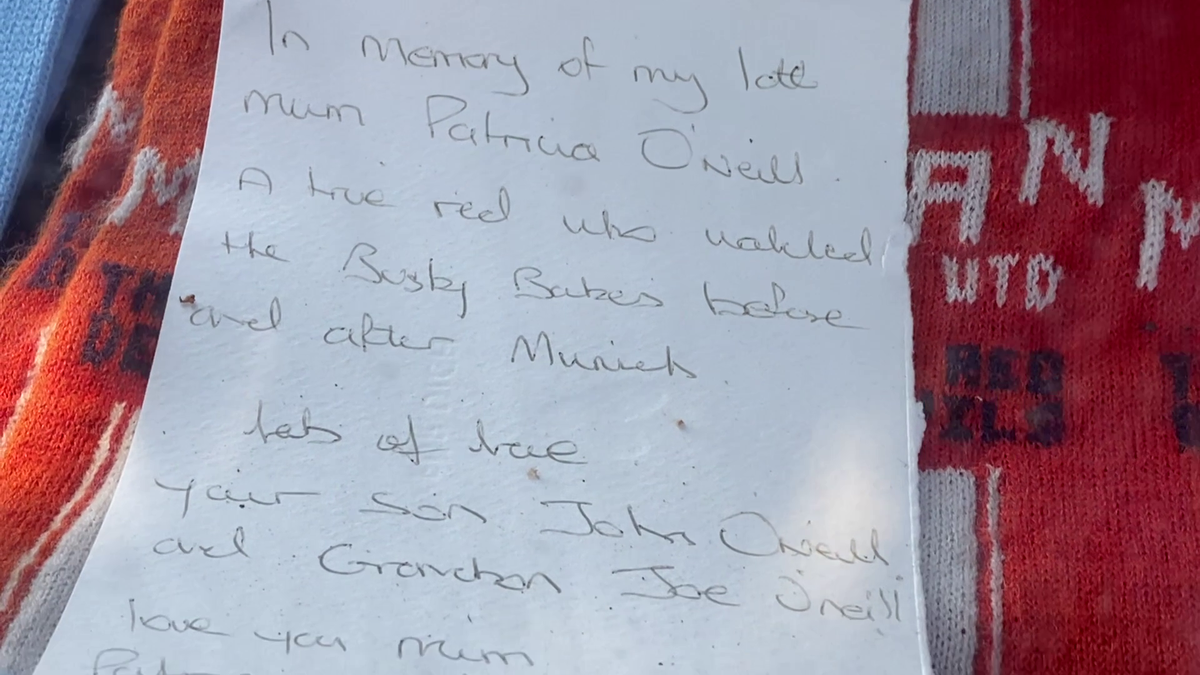 In Memory of my late
mum Patricia O'Neill.
A true red who watched
the Busby Babes before
and after Munich
lots of love
your son John O'Neill
and Grandson Joe O'Neill
love you mum
MAN
UTD
RED